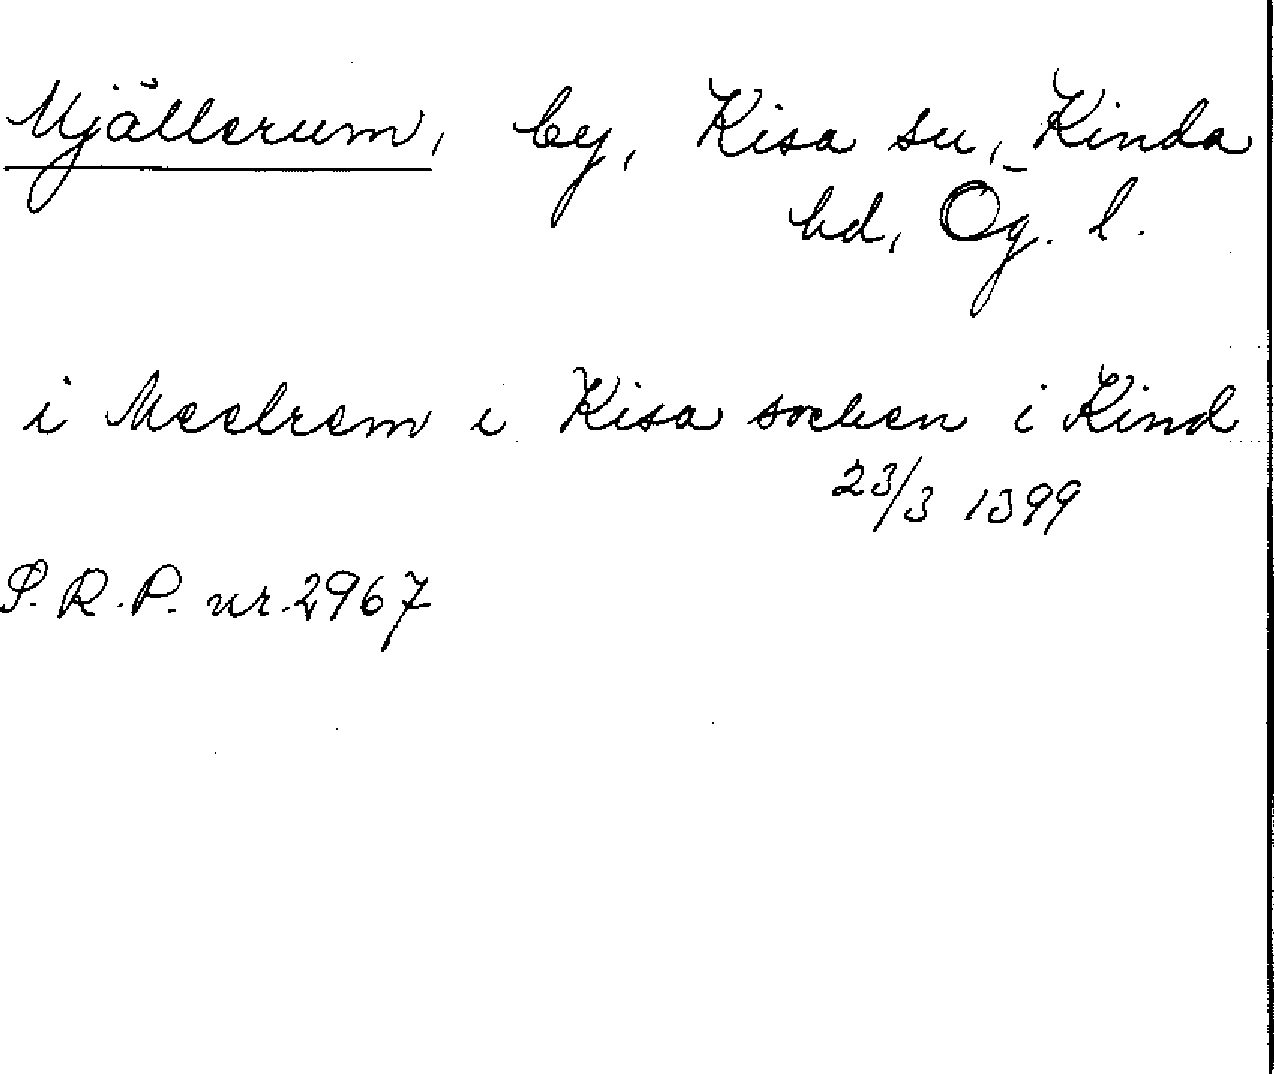 Mjällerum, by, Kisa sn, Kinda
hd, Ög. l.
i Meelrem i Kisa socken i Kind
23/3 1399
S.R.P. nr. 2967